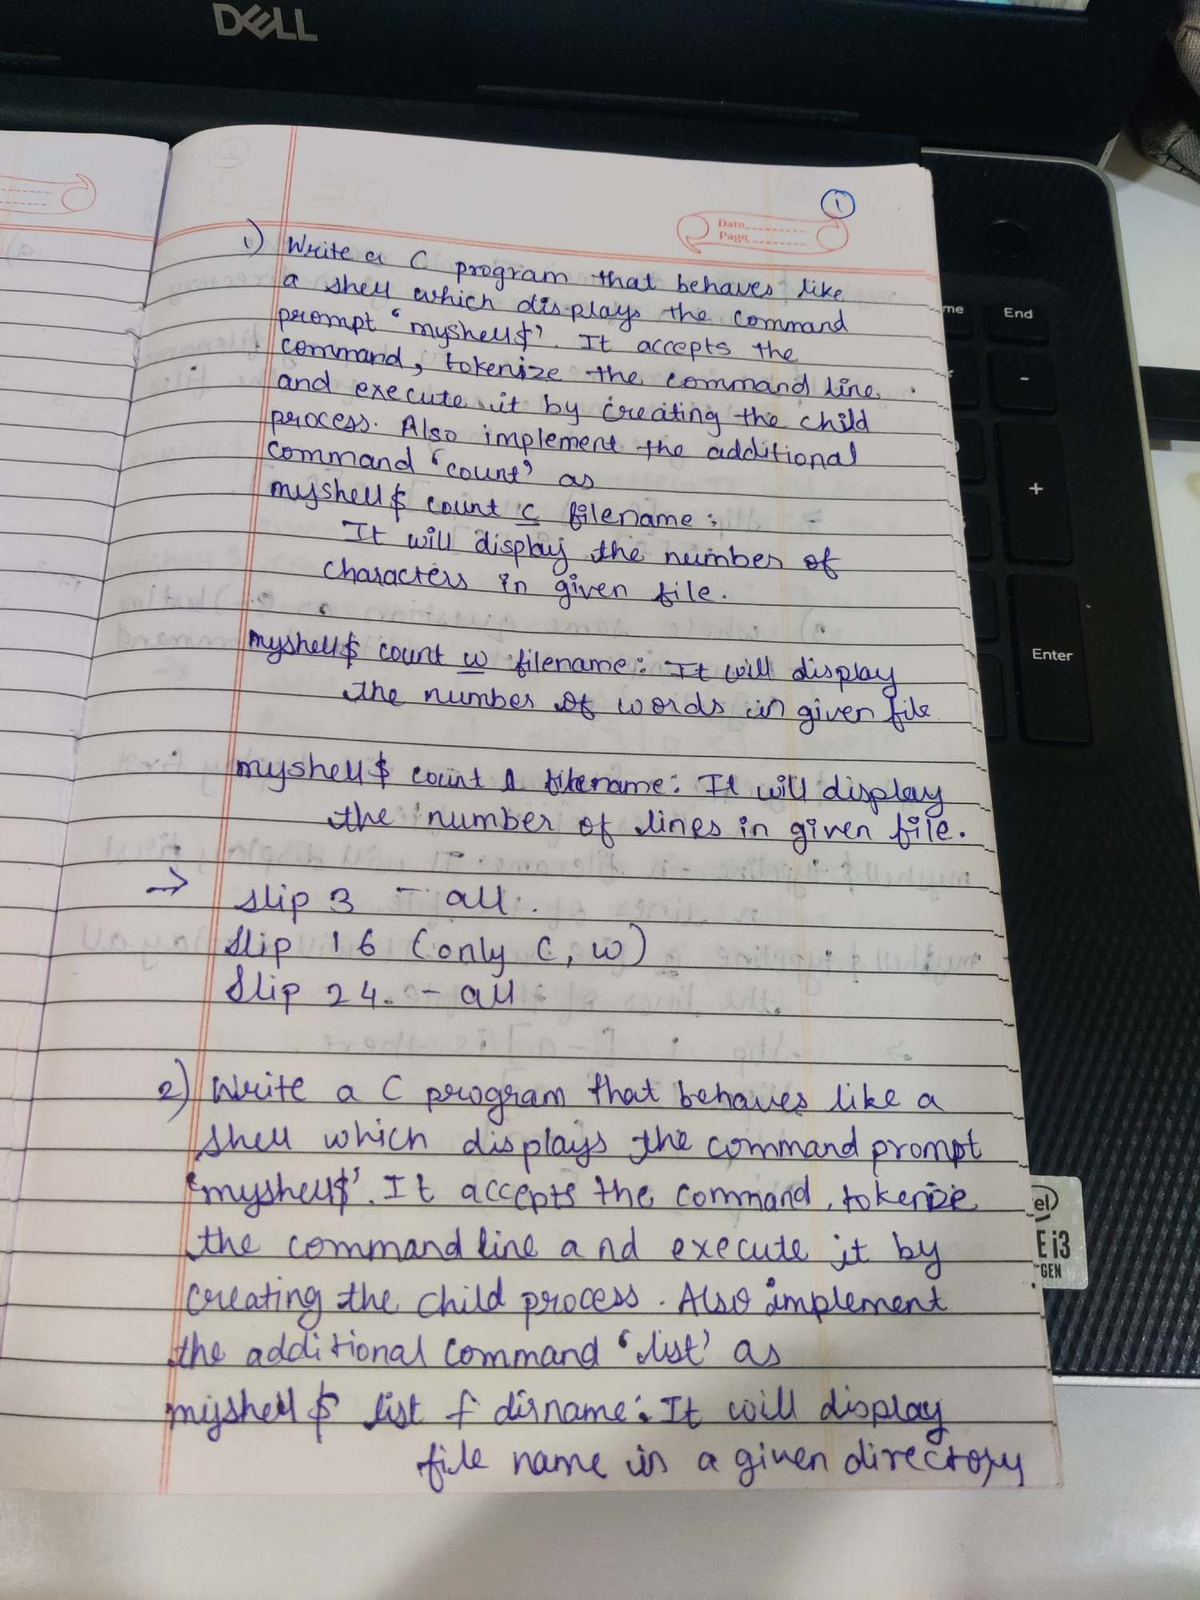 DELL
1
Date
Page
1) Write a C program that behaves like
a shell which displays the command
prompt 'myshell$'. It accepts the
command, tokenize the command line
and execute it by creating the child
process. Also implement the additional
command 'count' as
myshell$ count c filename:
It will display the number of
characters in given file.
myshell$ count w filename: It will display
the number of words in given file
myshell$ count l filename: It will display
the number of lines in given file.
→ slip 3 - all.
slip 16 (only C, w)
slip 24. - all.
2) Write a C program that behaves like a
shell which displays the command prompt
'myshell$'. It accepts the command, tokenize
the command line and execute it by
creating the child process. Also implement
the additional command 'list' as
myshell$ list f dirname: It will display
file name in a given directory
me
End
-
+
Enter
el)
E i3
GEN